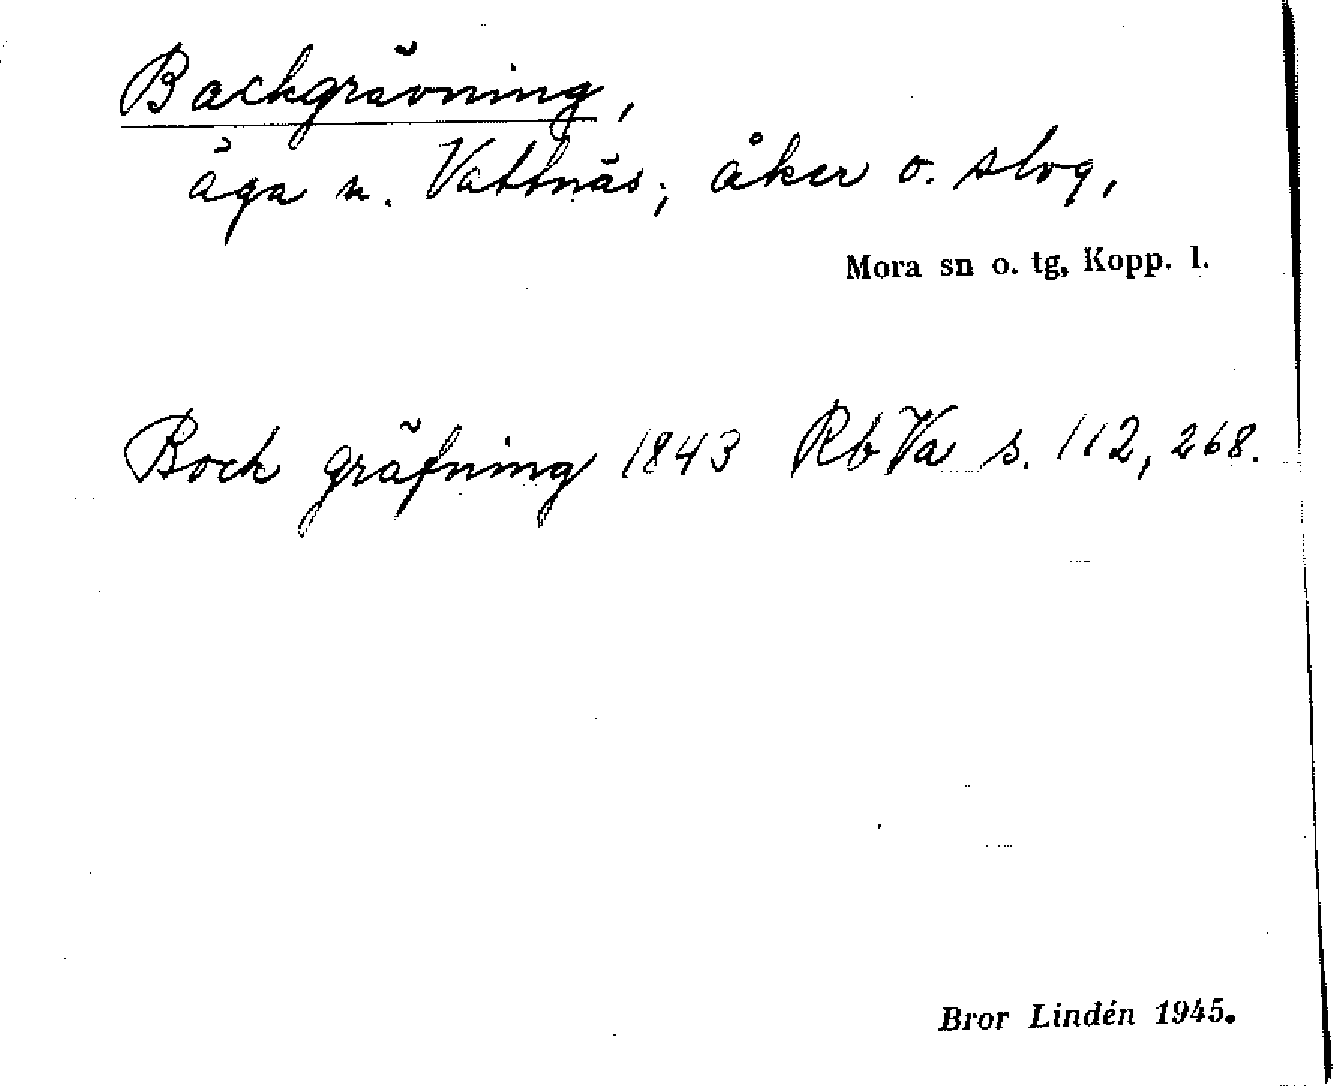 Backgrävning,
äga n. Vattnäs; åker o. slog,
Mora sn o. tg, Kopp. l.
Bock gräfning 1843 Rb Va s. 112, 268.
Bror Lindén 1945.